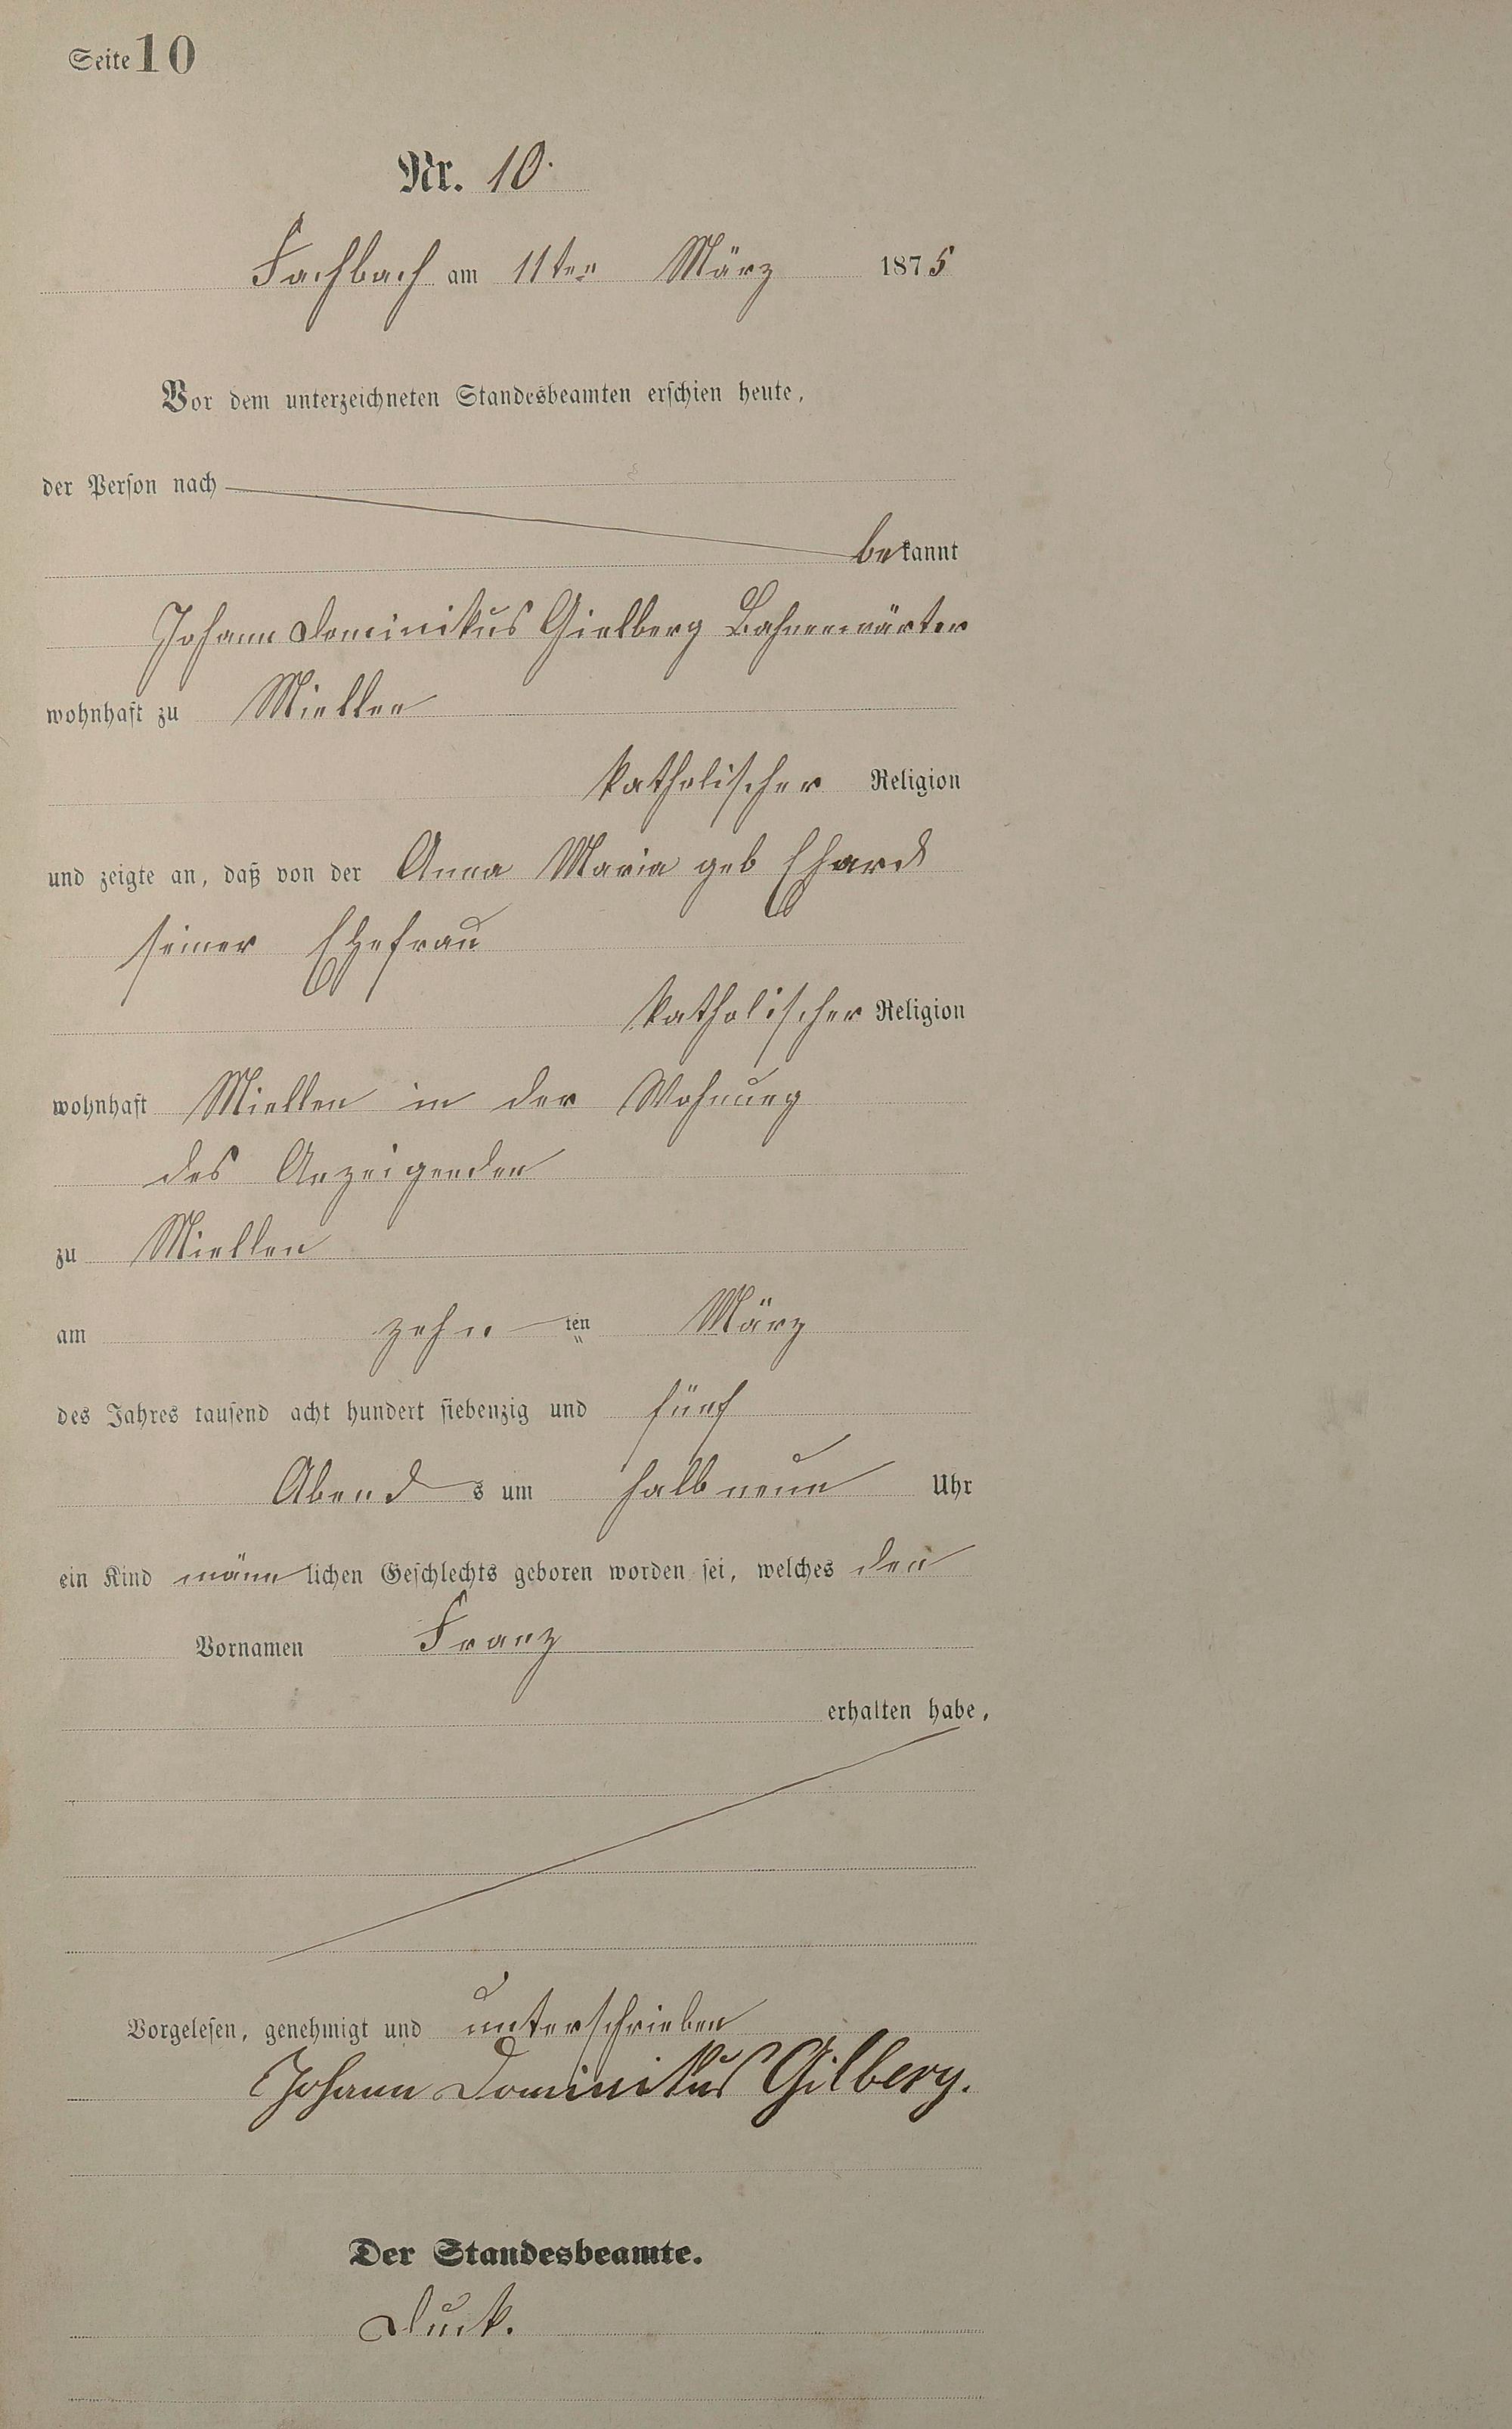 Seite 10
Nr. 10.
Fachbach am 11ten März 1875
Vor dem unterzeichneten Standesbeamten erschien heute,
der Person nach
bekannt
Johann Dominikus Gielberg Bahnwärter
wohnhaft zu Miellen
katholischer Religion
und zeigte an, daß von der Anna Maria geb Ehard
seiner Ehefrau
katholischer Religion
wohnhaft Miellen in der Wohnung
des Anzeigenden
zu Miellen
am zehn ten März
des Jahres tausend acht hundert siebenzig und fünf
Abend s um halb neun Uhr
ein Kind männlichen Geschlechts geboren worden sei, welches den
Vornamen Franz
erhalten habe,
Vorgelesen, genehmigt und unterschrieben
Johann Dominikus Gilberg.
Der Standesbeamte.